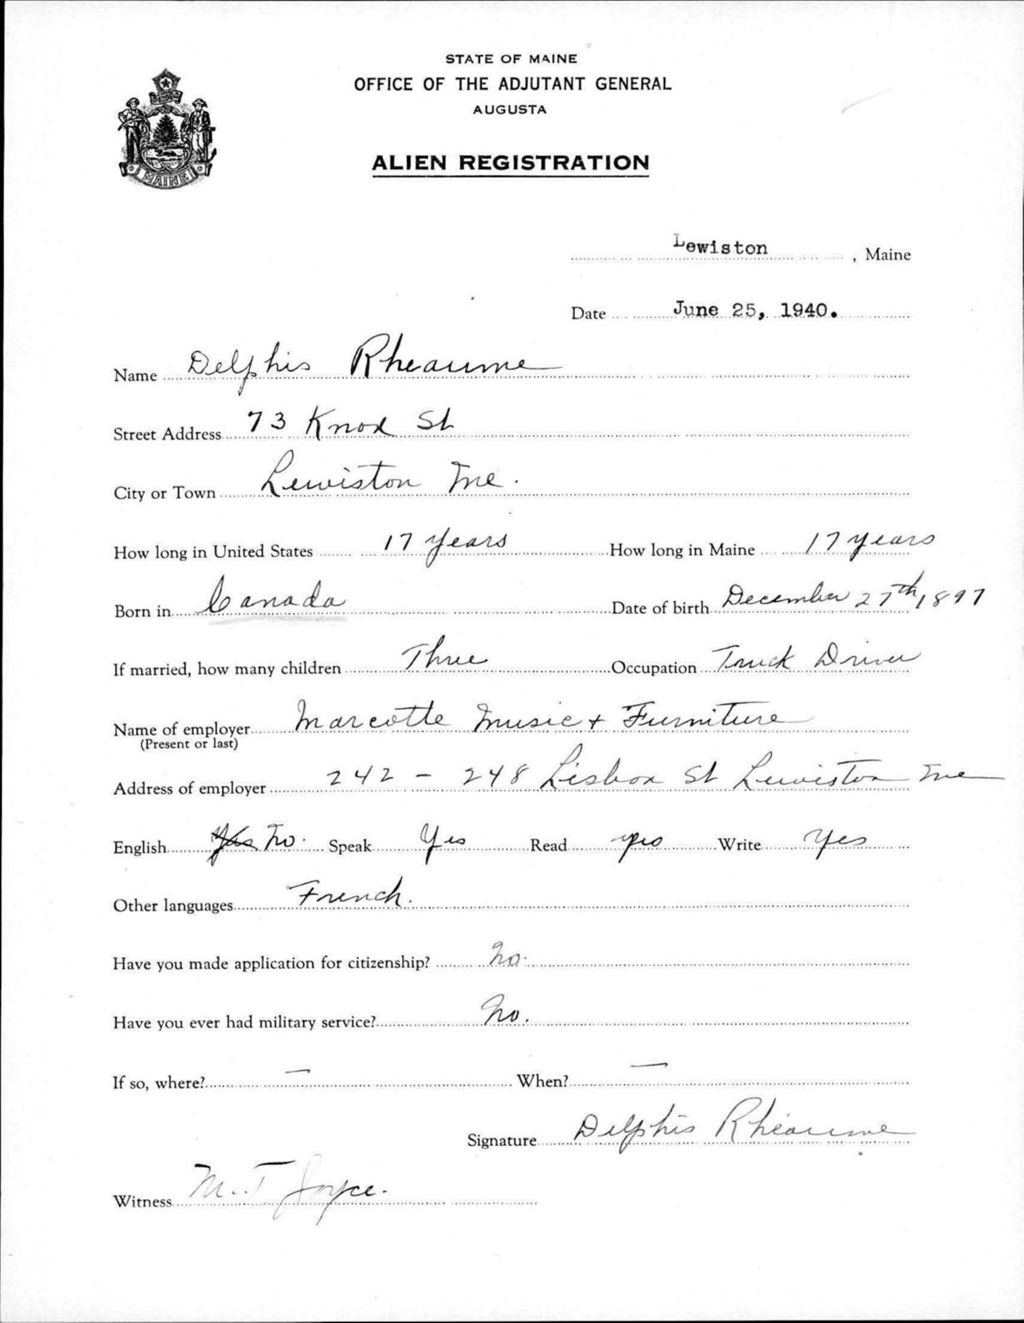 STATE OF MAINE
OFFICE OF THE ADJUTANT GENERAL
AUGUSTA
ALIEN REGISTRATION
MAINE
Lewiston, Maine
Date June 25, 1940.
Name Delphis Rheaume
Street Address 73 Knox St
City or Town Lewiston Me.
How long in United States 17 years How long in Maine 17 years
Born in Canada Date of birth December 27th, 1897
If married, how many children Three Occupation Truck Driver
Name of employer Marcotte Music + Furniture
(Present or last)
Address of employer 242 - 248 Lisbon St Lewiston Me
English Yes No. Speak Yes Read yes Write Yes
Other languages French.
Have you made application for citizenship? No.
Have you ever had military service? No.
If so, where? — When? —
Signature Delphis Rheaume
Witness M. T Joyce.